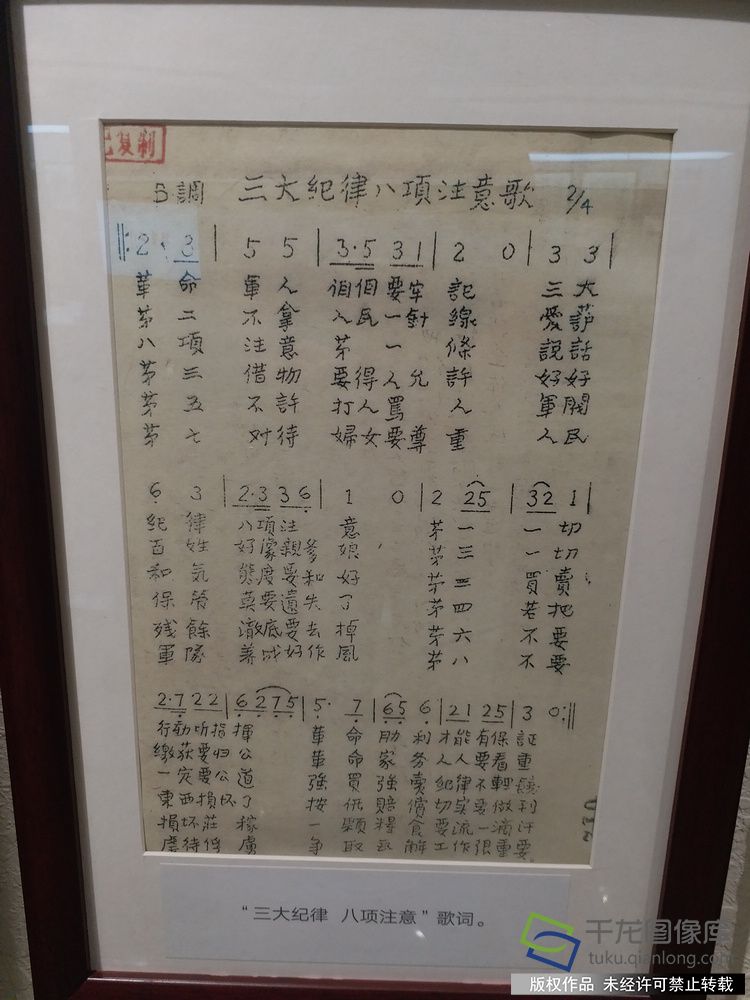 已复制
B調 三大纪律八項注意歌 2/4
‖: 2 · 3 | 5 5 | 3·5 3 1 | 2 0 | 3 3 |
革 命 軍 人 個個要牢 記 三 大
茅 二 不 拿 人民一針 線 愛 護
八 項 注 意 茅 一 條 說 話
茅 三 借 物 要得人允 許 好 好
茅 五 不 許 打人罵 人 軍 閥
茅 七 对 待 婦女要尊 重 人 民
6 3 | 2·3 3 6 | 1 0 | 2 25 | 32 1 |
纪 律 八項注 意 茅 一 一 切
百 姓 好像親爹 娘 茅 三 一 切
和 気 態度要和 好 茅 二 買 賣
保 管 莫要遺失 了 茅 四 若 把
残 餘 澈底要去 掉 茅 六 不 要
軍 隊 养成好作 風 茅 八 不 要
2·7 22 | 6 275 | 5· 7 | 65 6 | 21 25 | 3 0 :‖
行動听指 揮 革 命 勝 利 才能有保 証
繳获要归 公 革 命 家 务 人人要看 重
一定要公 道 強 買 強 賣 犯律不輕 饒
東西損坏 了 按 價 賠 償 切实要做 到
損坏莊 稼 一 顆 糧 食 要流一滴 汗
虐待俘 虜 爭 取 瓦 解 工作很重 要
“三大纪律 八项注意”歌词。
千龙图像库
tuku.qianlong.com
版权作品 未经许可禁止转载